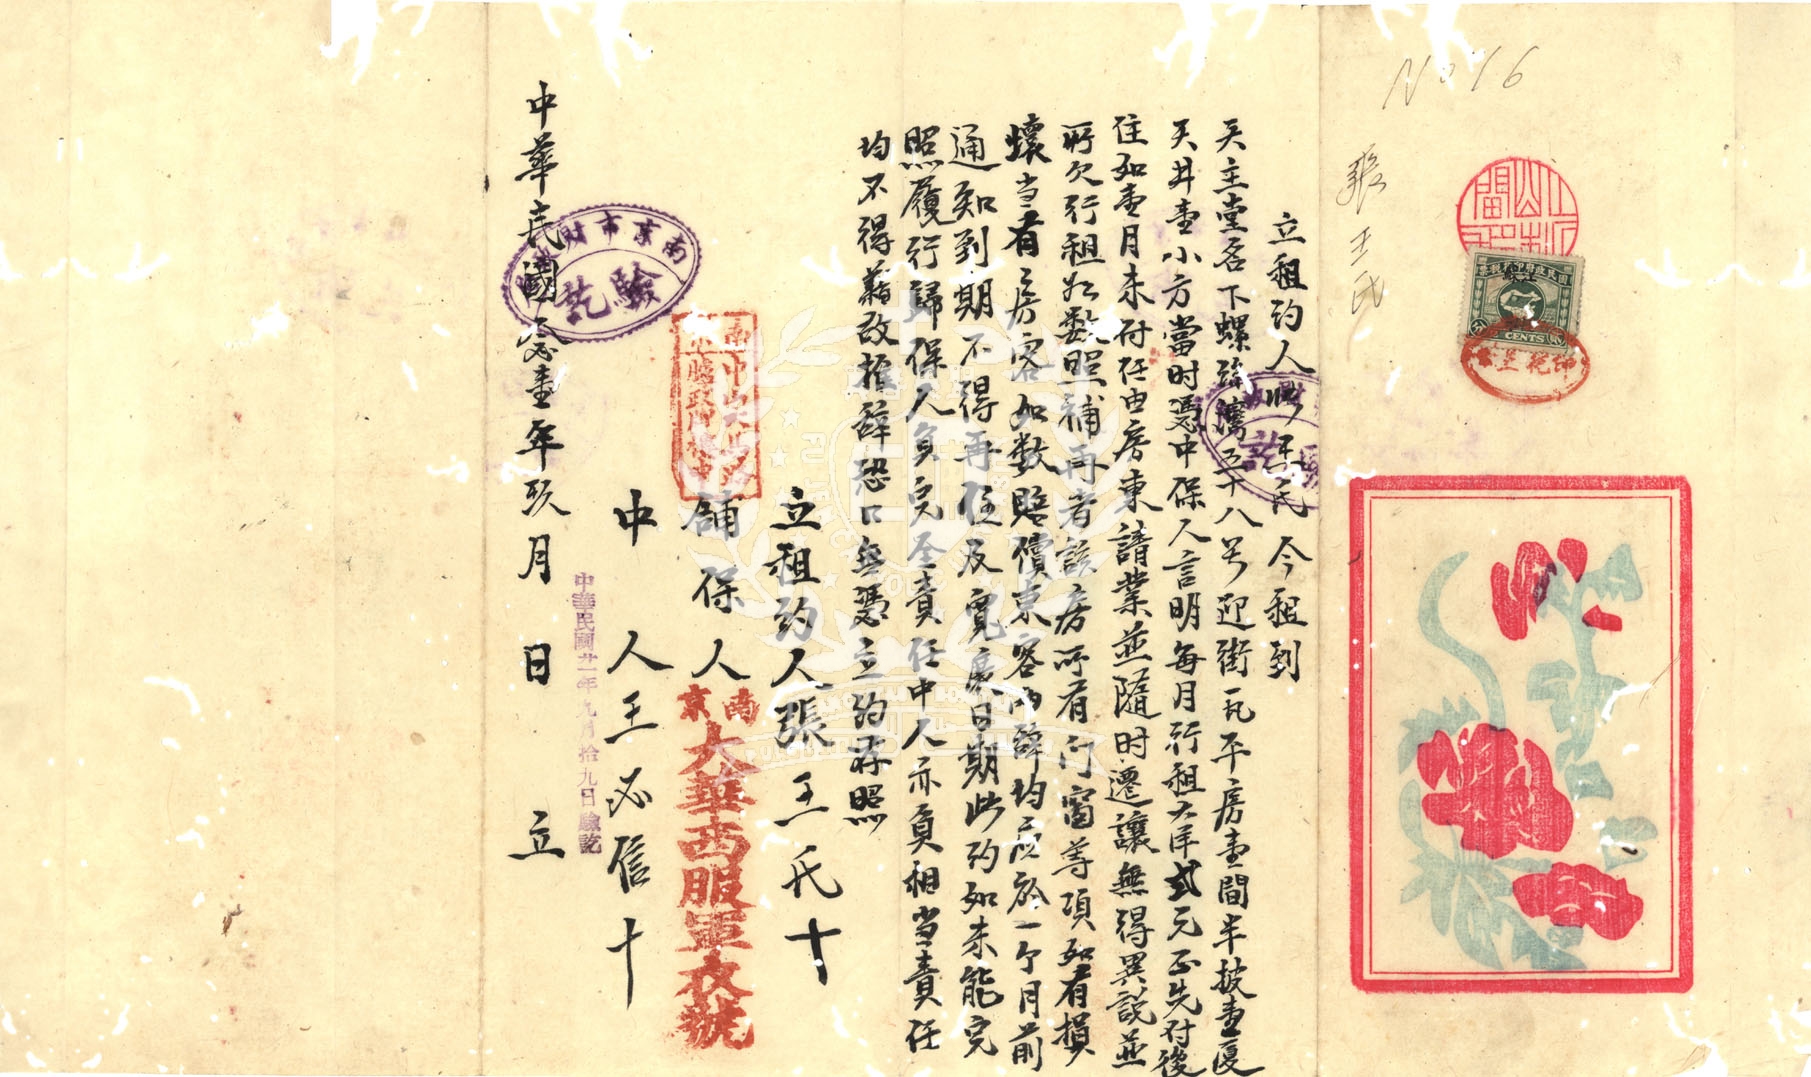 No 16
張王氏
CENTS
立租約人張王氏今租到
天主堂名下螺絲灣五十八号迎街瓦平房壹間半披壹厦
天井壹小方當时憑中保人言明每月行租大洋弍元正先付後
住如壹月未付任由房東請業並隨时遷讓無得異説並
所欠行租如数照補再者該房所有门窗等項如有損
壞当有房客如数賠償東客如辞均应於一个月前
通知到期不得再住及寬展日期此約如未能完
照履行歸保人負完全責任中人亦負相当責任
均不得藉故推辞恐口無憑立約存照
立租約人張王氏十
舖保人
南京
大華西服軍衣號
中人王必信十
中華民國廿一年九月拾九日驗訖
南京市財
驗訖
中華民國叁壹年玖月日立